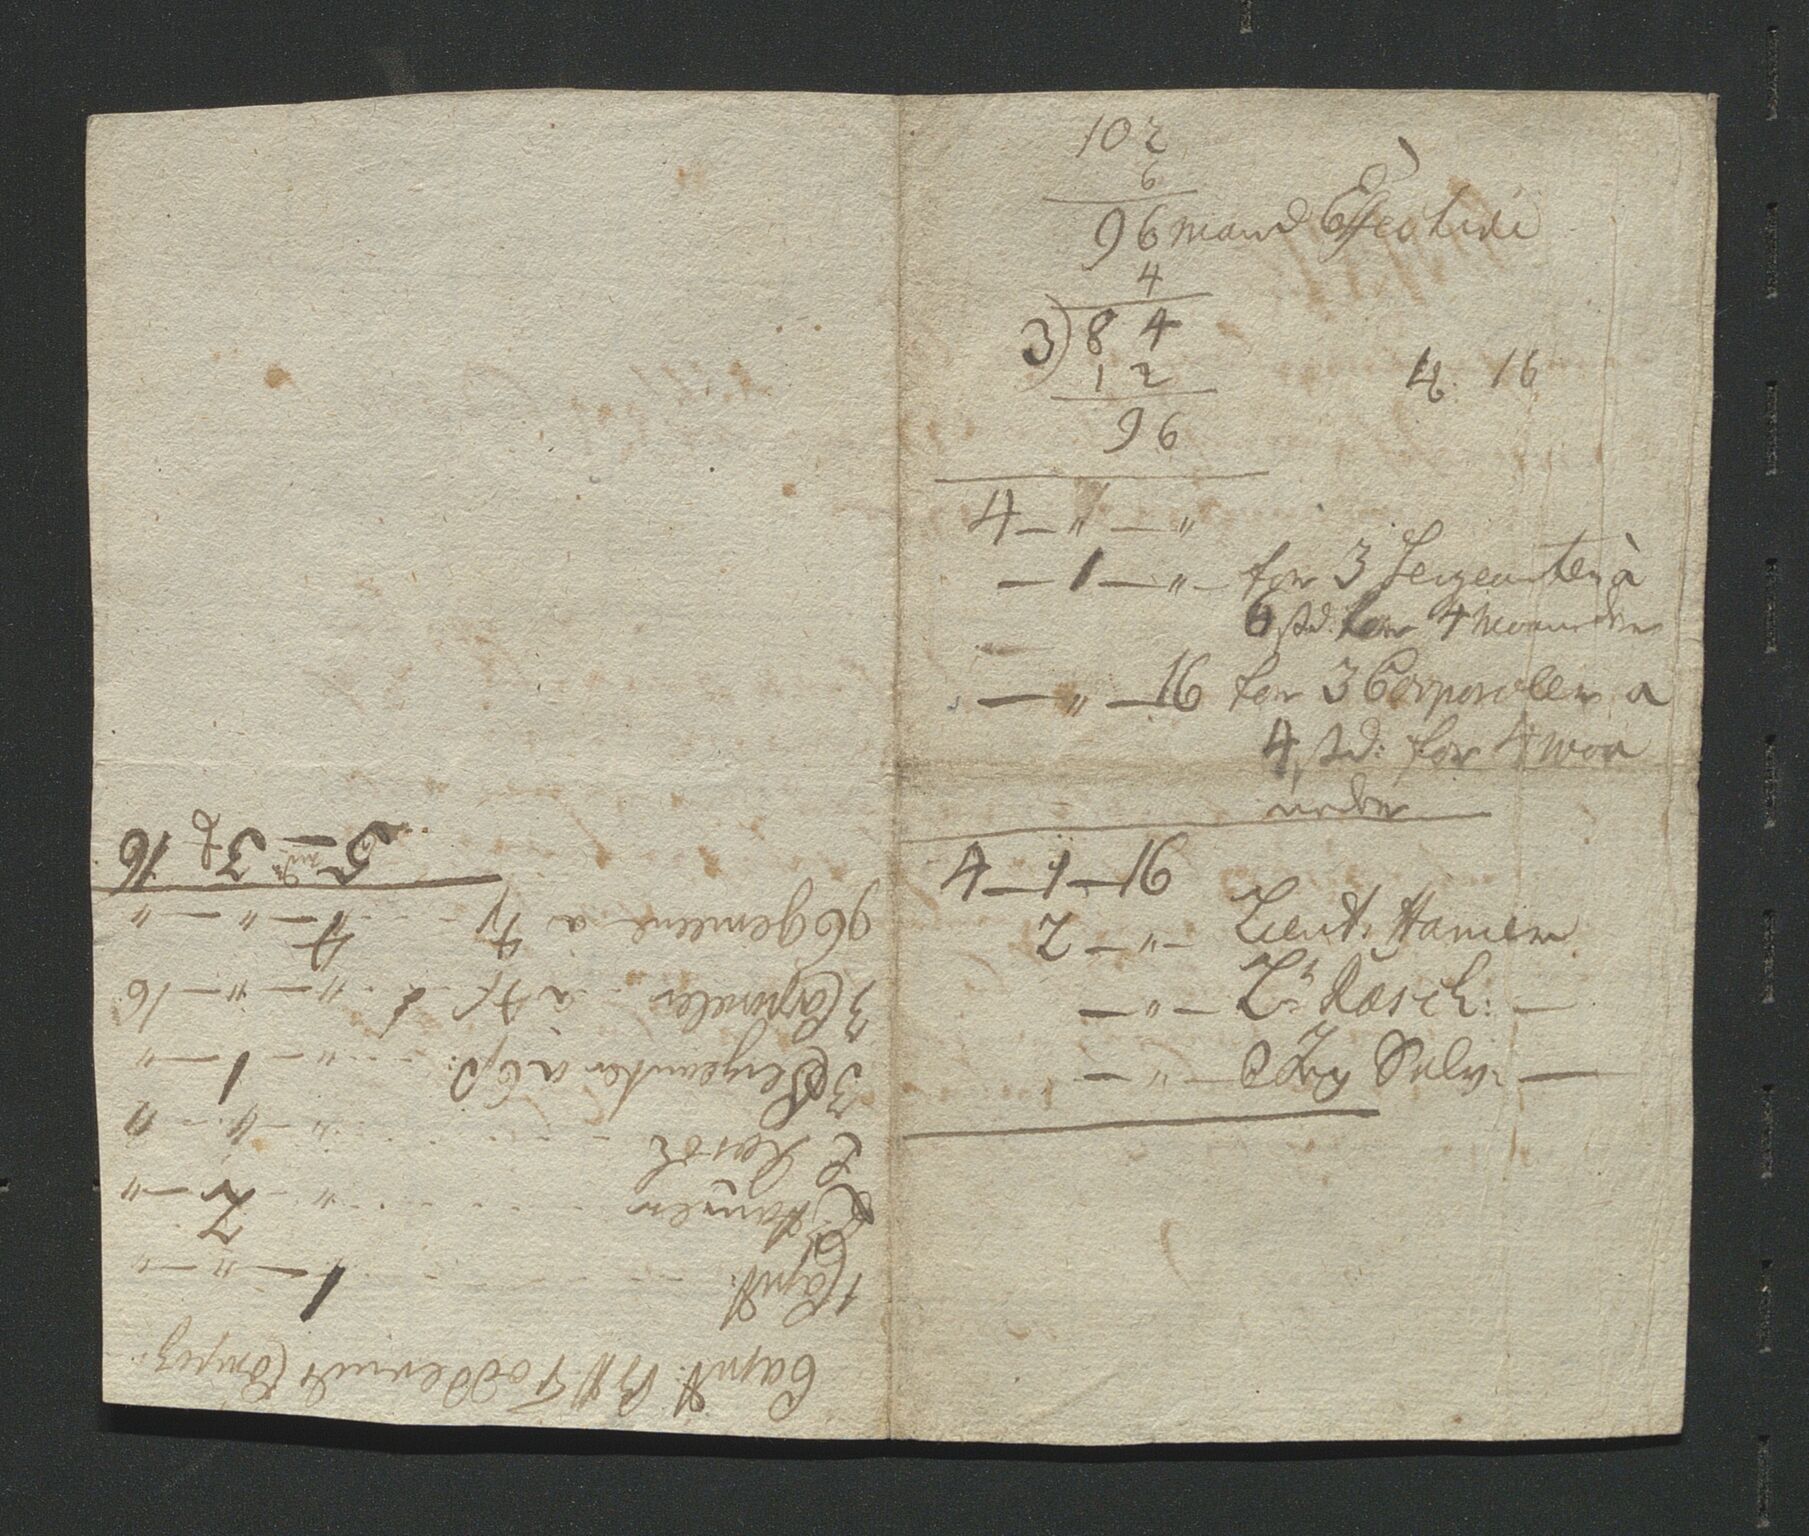 102
6
96 mand Effective
4
3) 84
12
96
16
4 — " — "
— 1 — " — for 3 Sergeanter à
6 sk: for 4 Maaneder
— " — 16 for 3 Corporaler a
4 sk: for 4 Maa
neder
4 — 1 — 16
2 — " — Lieut: Hansen
— " — Lt Rasch: —
— " — Selv: —
Capt: Compag:
1 Capt: 1 — " — "
Lt Hansen " — 2 — "
L Rasch " — " — "
3 Sergeanter a 6 " — 1 — "
3 Corporaler à 4 " — " — 16
96 gemene a 4 4 — " — "
5 — 3 16